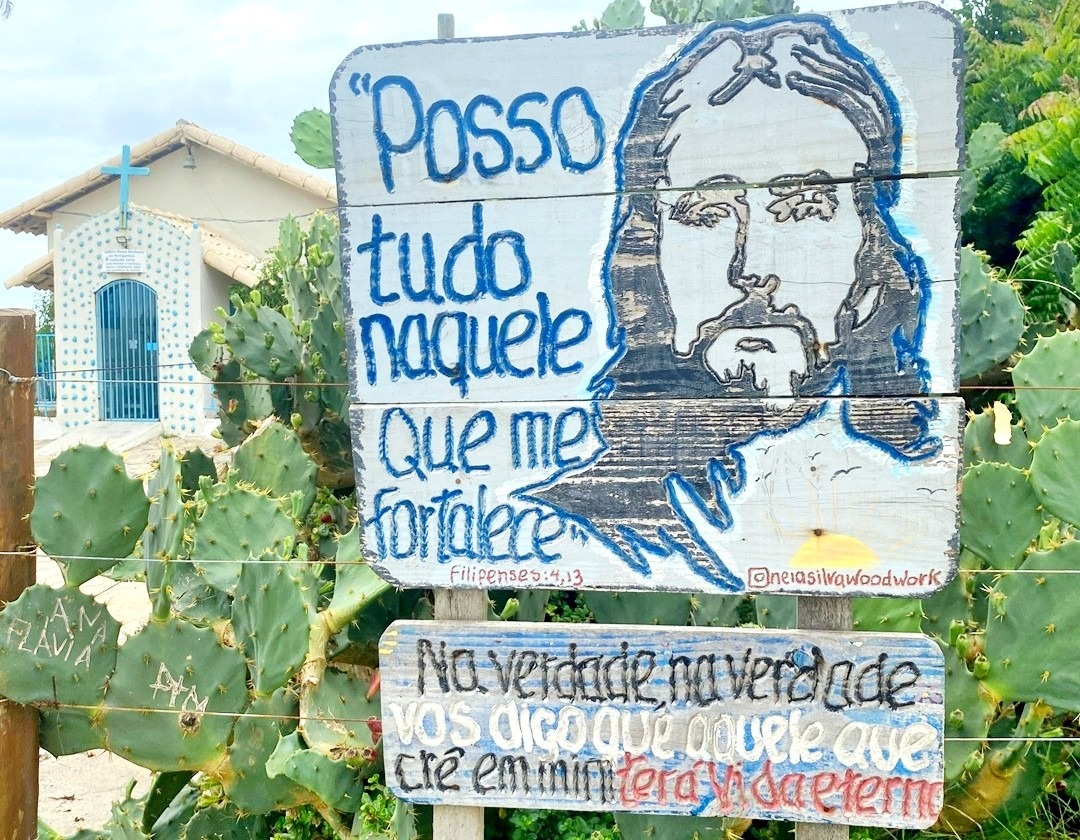 "Posso
tudo
naquele
Que me
fortalece"
Filipenses:4,13
neiasilvawoodwork
Na verdade, na verdade
vos digo que aquele que
crê em mim terá vida eterna
I AM
FLAVIA